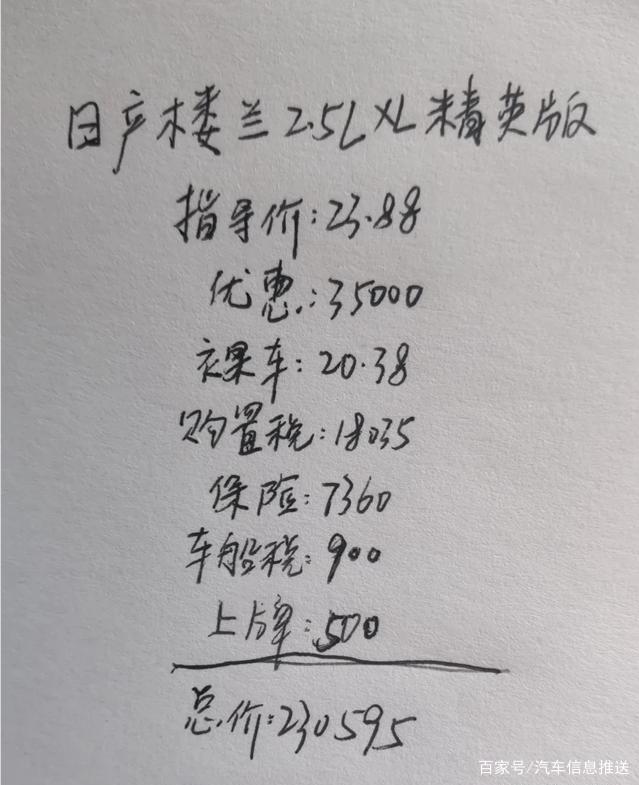 日产楼兰2.5L XL精英版
指导价:23.88
优惠:35000
裸车:20.38
购置税:18035
保险:7360
车船税:900
上牌:500
总价:230595
百家号/汽车信息推送